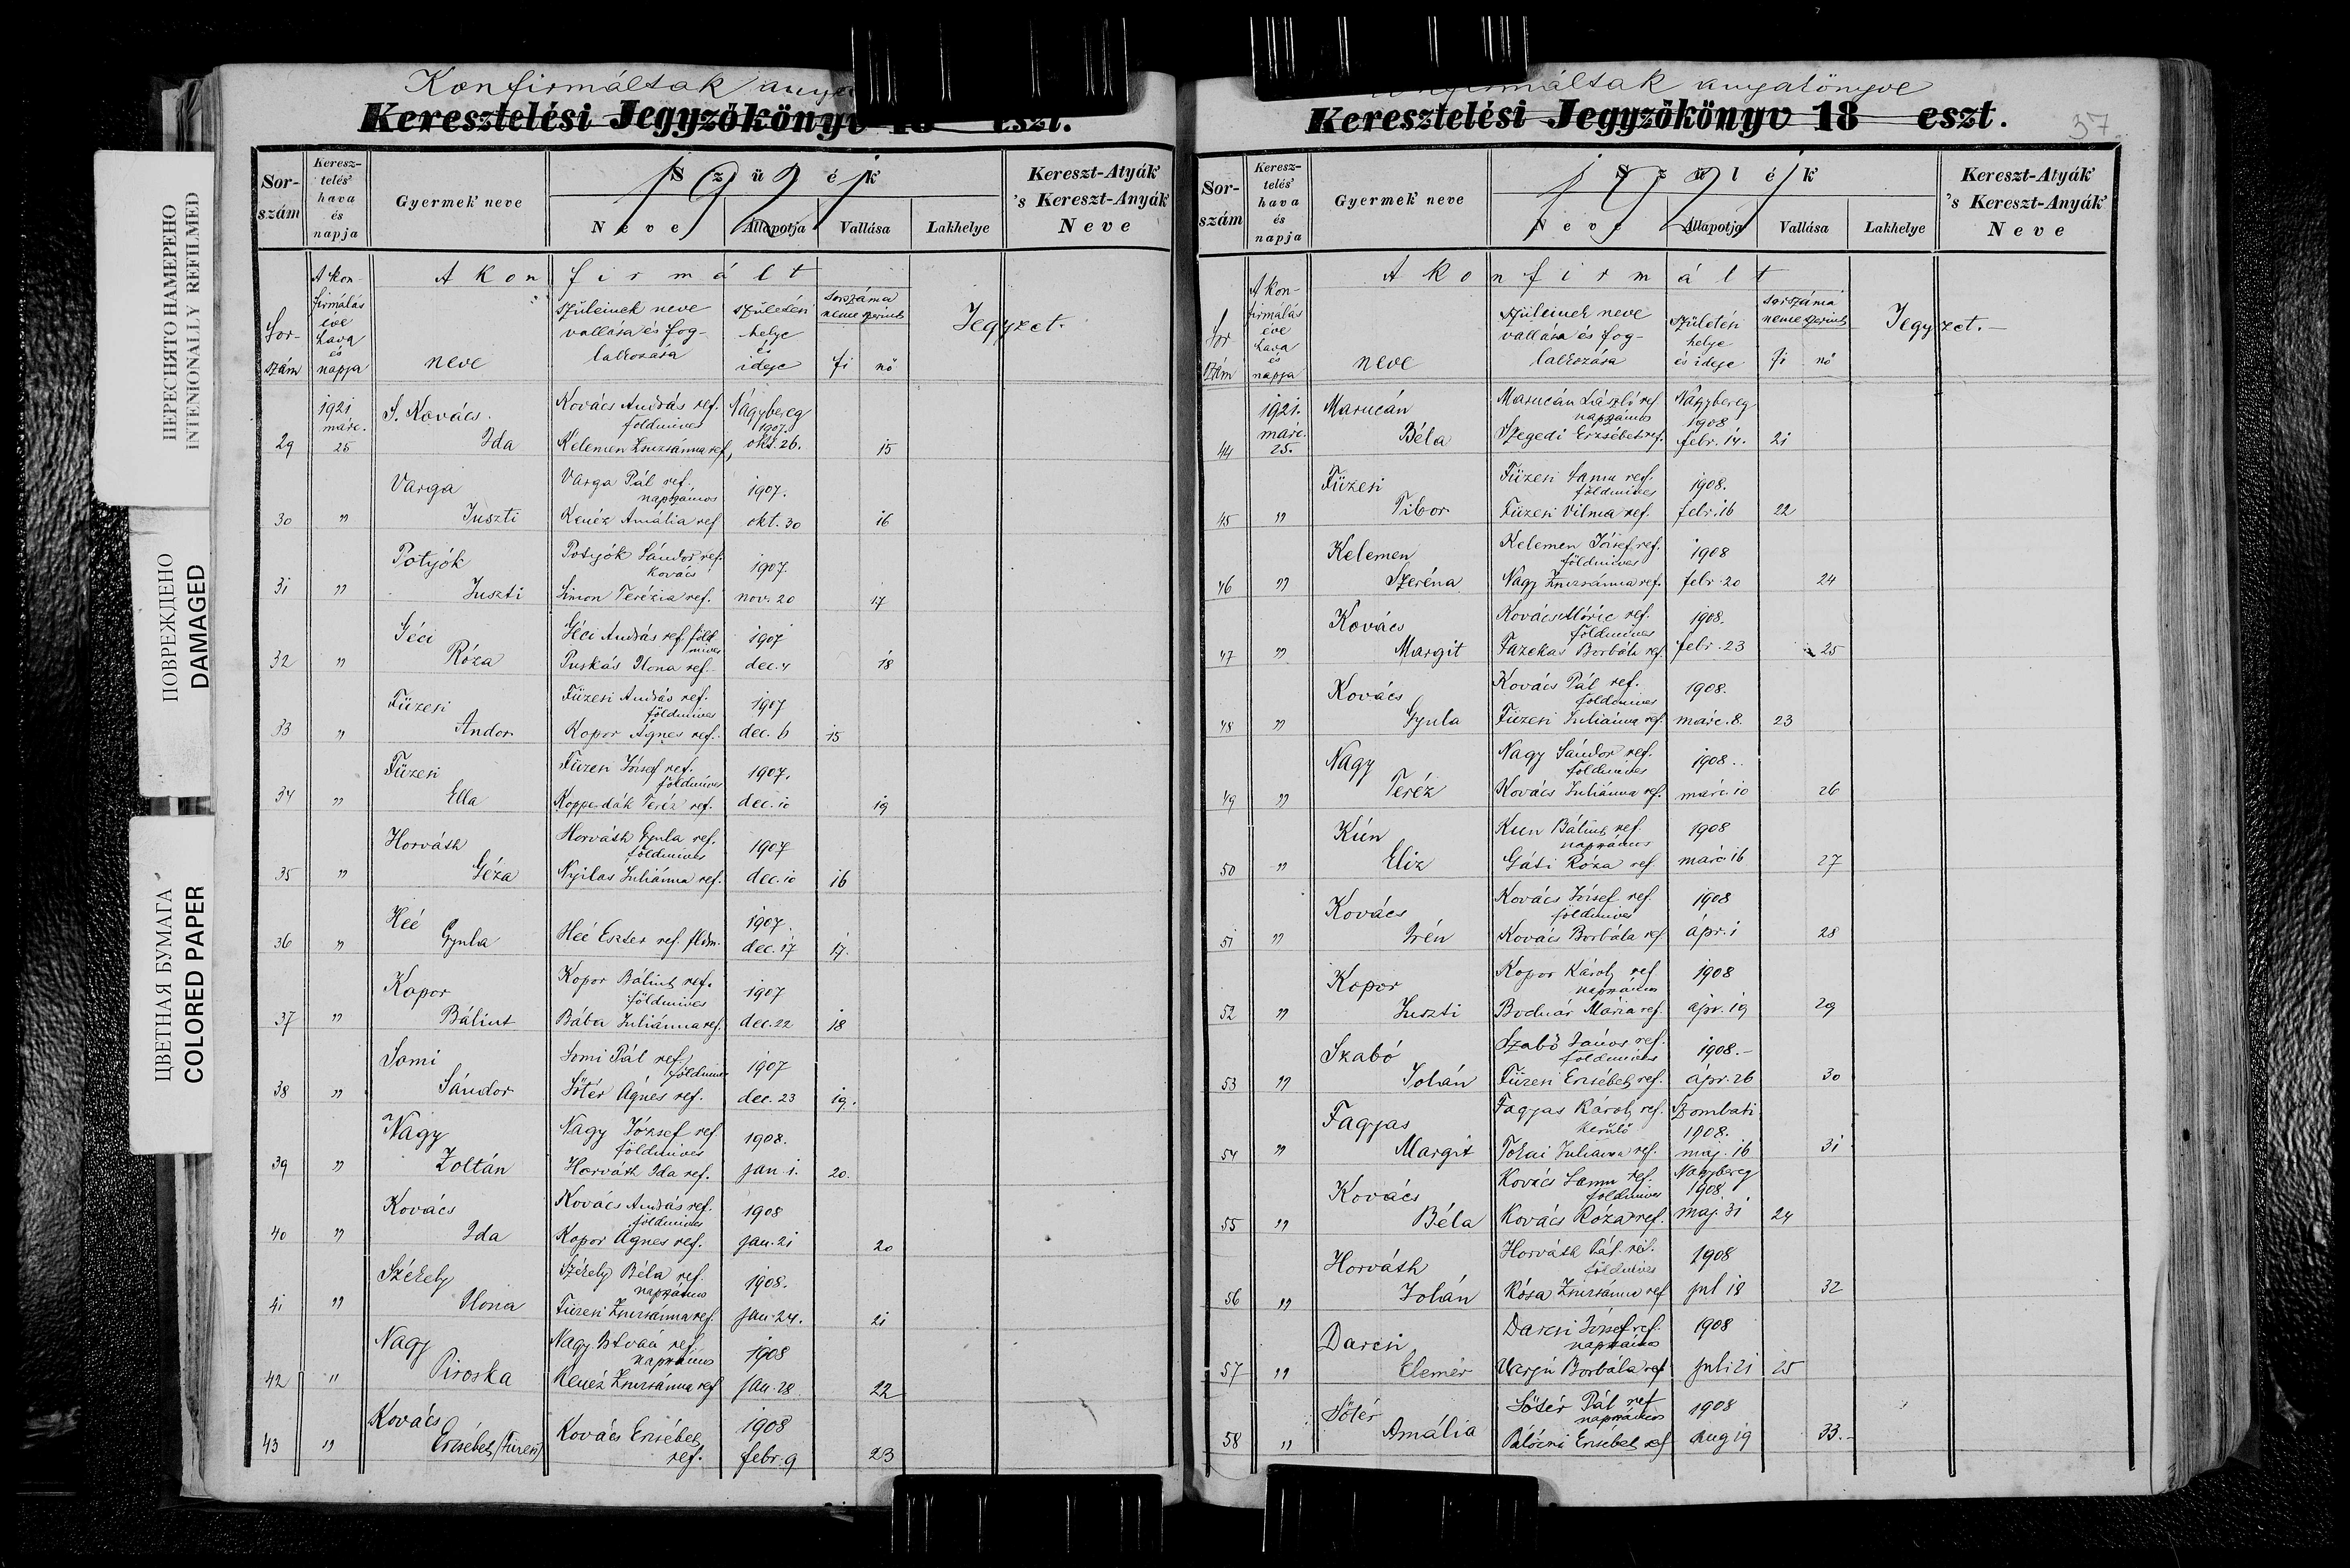 ПЕРЕСНЯТО НАМЕРЕНО
INTENIONALLY REFILMED
ПОВРЕЖДЕНО
DAMAGED
ЦВЕТНАЯ БУМАГА
COLORED PAPER
Konfirmáltak
Keresztelési Jegyzökönyv 18 eszt.
1921
Sor-szám
Keresz-telés' hava és napja
Gyermek neve
Szülék
Neve
Állapotja
Vallása
Lakhelye
Kereszt-Atyák 's Kereszt-Anyák' Neve
A konfirmált
Sor-szám
A konfirmálás éve hava és napja
neve
szüleinek neve vallása és fog-lalkozása
születési helye és ideje
sorszáma neme szerint
fi nő
Jegyzet.
29 1921 márc. 25 S. Kovács Ida Kovács András ref. földmives Kelemen Zsuzsánna ref. Nagybereg 1907. okt. 26. 15
30 " Varga Juszti Varga Pál ref. napszámos Kenéz Amália ref 1907. okt. 30 16
31 " Potyók Juszti Potyók Sándor ref. kovács Simon Terézia ref. 1907. nov. 20 17
32 " Géci Róza Géci András ref. földmives Puskás Ilona ref. 1907 dec. 4 18
33 " Füzesi Andor Füzesi András ref. földmives Kopor Ágnes ref. 1907 dec. 6 15
34 " Füzesi Ella Füzesi József ref. földmives Teréz ref. 1907. dec. 10 19
35 " Horváth Géza Horváth Gyula ref. földmives Nyilas Juliánna ref. 1907 dec. 10 16
36 " Héé Gyula Héé Eszter ref. 1907. dec. 17 17.
37 " Kopor Bálint Kopor Bálint ref. földmives Bába Juliánna ref. 1907 dec. 22 18
38 " Somi Sándor Somi Pál ref. földmives Sőtér Ágnes ref. 1907 dec. 23 19.
39 " Nagy Zoltán Nagy József ref. földmives Horváth Ida ref. 1908. jan. 1. 20.
40 " Kovács Ida Kovács András ref. földmives Kopor Ágnes ref. 1908 jan. 21 20
41 " Székely Ilona Székely Béla ref. napszámos Füzesi Zsuzsánna ref. 1908. jan. 24. 21
42 " Nagy Piroska Nagy István ref. napszámos Kenéz Zsuzsánna ref 1908 jan. 28. 22
43 " Kovács Erzsébet /Füzesi/ Kovács Erzsébet ref. 1908 febr. 9 23
anyakönyve
Keresztelési Jegyzökönyv 18 eszt.
37
1921
Sor-szám
Keresz-telés' hava és napja
Gyermek neve
Szülék
Neve
Állapotja
Vallása
Lakhelye
Kereszt-Atyák 's Kereszt-Anyák' Neve
A konfirmált
Sor-szám
A konfirmálás éve hava és napja
neve
szüleinek neve vallása és fog-lalkozása
születési helye és ideje
sorszáma neme szerint
fi nő
Jegyzet.-
44 1921. márc. 25. Marucán Béla Marucán László ref napszámos Szegedi Erzsébet ref. Nagybereg 1908 febr. 14. 21
45 " Füzesi Tibor Füzesi Samu ref. földmives Füzesi Vilma ref. 1908. febr. 16 22
46 " Kelemen Szeréna Kelemen József ref. földmives Nagy Zsuzsánna ref. 1908 febr. 20 24
47 " Kovács Margit Kovács Móric ref. földmives Fazekas Borbála ref. 1908. febr. 23 25
48 " Kovács Gyula Kovács Pál ref. földmives Füzesi Juliánna ref. 1908. márc. 8. 23
49 " Nagy Teréz Nagy Sándor ref. földmives Kovács Juliánna ref. 1908.. márc. 10 26
50 " Kún Eliz Kun Bálint ref. napszámos Gáti Róza ref 1908 márc 16 27
51 " Kovács Irén Kovács József ref. földmives Kovács Borbála ref 1908 ápr. 1 28
52 " Kopor Juszti Kopor Károly ref napszámos Bodnár Mária ref. 1908 ápr. 19 29
53 " Szabó Jolán Szabó János ref. földmives Füzesi Erzsébet ref. 1908.- ápr. 26 30
54 " Fagyas Margit Fagyas Károly ref. kerülő Tokai Juliánna ref. Szombati 1908. máj. 16 31
55 " Kovács Béla Kovács Samu ref. földmives Kovács Róza ref. Nagybereg 1908 máj. 31 24
56 " Horváth Jolán Horváth Pál ref. földmives Kósa Zsuzsánna ref 1908 jul 18 32
57 " Darcsi Elemér Darcsi József ref. napszámos Varjú Borbála ref 1908 juli 21 25
58 " Sőtér Amália Sőtér Pál ref napszámos Erzsébet ref 1908 aug 19 33.-